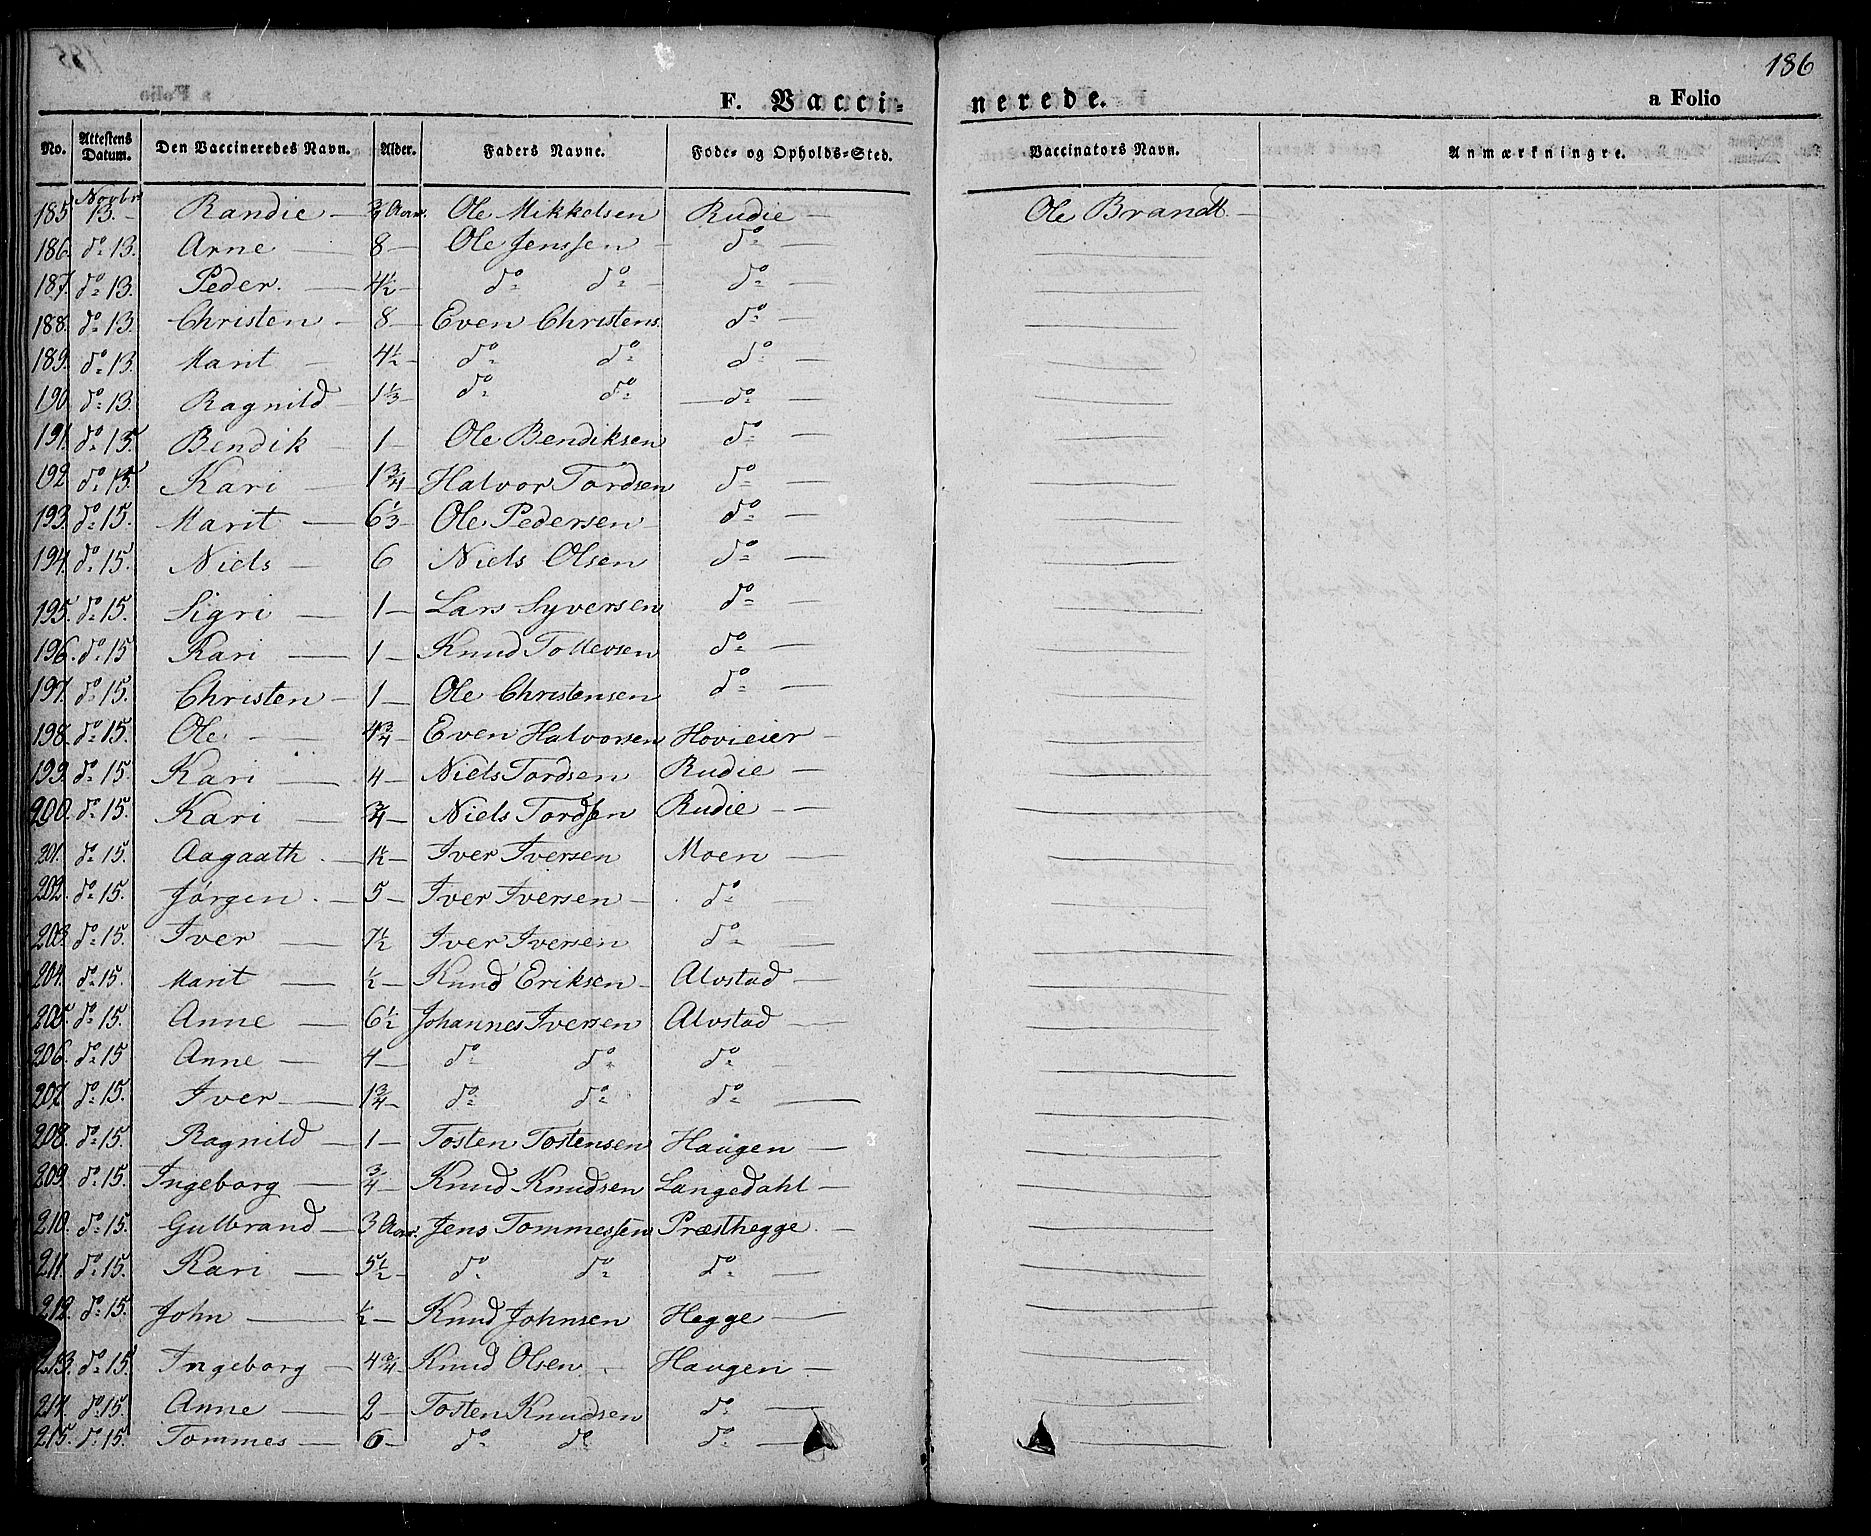 186
F. Vaccinerede. a Folio
No. Attestens Datum. Den Vaccineredes Navn. Alder. Faders Navne. Føde- og Opholds-Sted. Vaccinators Navn. Anmærkningre.
185 Novbr 13. Randie — 3/4 Aar. Ole Mikkelsen Rudie — Ole Brandt —
186. do 13. Arne — 8 — Ole Jenssen — do —
187. do 13. Peder. — 4½ — do do — do —
188. do 13. Christen — 8 — Even Christens. do —
189. do 13. Marit — 4½ — do do do —
190. do 13. Ragnild — 1⅓ — do do — do —
191. do 15. Bendik — 1 — Ole Bendiksen do —
192 do 15. Kari — 1¾ Halvor Tordsen do —
193. do 15. Marit — 6⅓ — Ole Pedersen — do —
194. do 15. Niels — 6 Niels Olsen do —
195. do 15. Sigri — 1 — Lars Syversen do —
196. do 15 Kari — 1 — Knud Tollevsen do —
197. do 15. Christen — 1 — Ole Christensen do —
198. do 15. Ole — 4¾ — Even Halvorsen Hovieier —
199. do 15. Kari — 4 — Niels Tordsen Rudie —
200. do 15. Kari — ¾ — Niels Tordsen Rudie —
201. do 15. Aagaath. — 1½ — Iver Iversen Moen —
202. do 15. Jörgen. — 5 — Iver Iversen — do —
203. do 15. Iver — 7½ Iver Iversen do —
204. do 15. Marit — ½ — Knud Eriksen — Alvstad —
205. do 15. Anne — 6½ Johannes Iversen Alvstad —
206. do 15 Anne — 4 — do do do —
207. do 15. Iver — 1¾ — do do do —
208. do 15. Ragnild — 1 — Tosten Tostensen Haugen —
209. do 15. Ingeborg — ¾ — Knud Knudsen Langedahl —
210. do 15. Gulbrand — 3 Aar. Jens Tommessen Præsthegge. —
211. do 15. Kari — 5½ — do do do —
212. do 15. John — ½ — Knud Johnsen Hegge —
213. do 15. Ingeborg — 4¾ — Knud Olsen — Haugen —
214. do 15. Anne — 2 — Tosten Knudsen do —
215. do 15. Tommes — 6 — do do do —